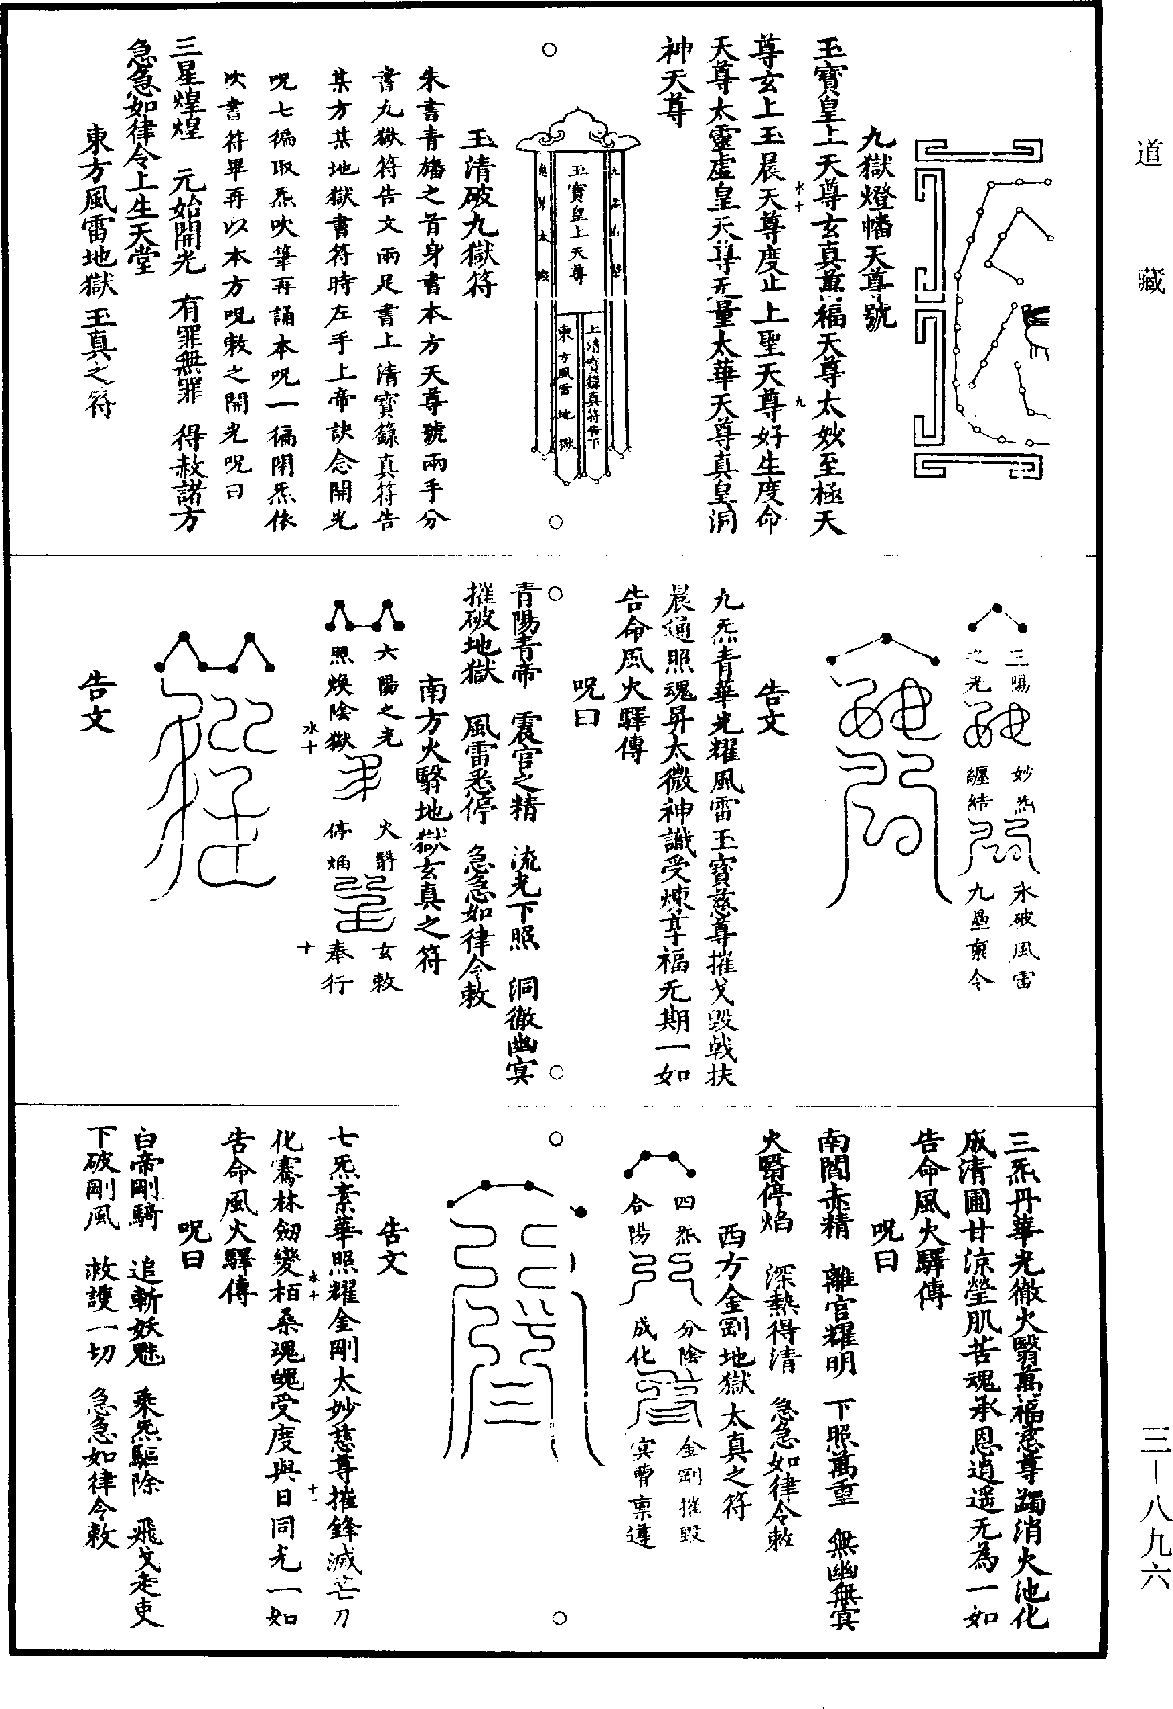 道藏
三—八九六
九獄燈幡天尊號
玉寶皇上天尊玄真萬福天尊太妙至極天
尊玄上玉晨天尊度止上聖天尊好生度命
天尊太靈虛皇天尊无量太華天尊真皇洞
神天尊
玉寶皇上天尊
東方風雷地獄
玉清破九獄符
朱書青旛之首身書本方天尊號兩手分
書九獄符告文兩足書上清寶籙真符告
某方某地獄書符時左手上帝訣念開光
呪七徧取炁吹筆再誦本呪一徧閉炁依
吹書符畢再以本方呪敕之開光呪曰
三星煌煌　元始開光　有罪無罪　得赦諸方
急急如律令上生天堂
東方風雷地獄玉真之符
三陽
之光
妙炁
纏結
永破風雷
九壘稟令
告文
九炁青華光耀風雷玉寶慈尊摧戈毀戟扶
晨通照魂昇太微神識受煉享福无期一如
告命風火驛傳
呪曰
青陽青帝　震宮之精　流光下照　洞徹幽冥
摧破地獄　風雷悉停　急急如律令敕
南方火翳地獄玄真之符
太陽之光
照煥陰獄
火翳
停焰
玄敕
奉行
告文
三炁丹華光徹火翳萬福慈尊蠲消火池化
成清圃甘涼瑩肌苦魂承恩逍遥无為一如
告命風火驛傳
呪曰
南閻赤精　離宮耀明　下照萬重　無幽無冥
火翳停焰　深熱得清　急急如律令敕
西方金剛地獄太真之符
四炁
合陽
分陰
成化
金剛摧毀
冥曹稟遵
告文
七炁素華照耀金剛太妙慈尊摧鋒滅芒刀
化騫林劒變栢桑魂魄受度與日同光一如
告命風火驛傳
呪曰
白帝剛騎　追斬妖魅　乘炁驅除　飛戈走吏
下破剛風　救護一切　急急如律令敕